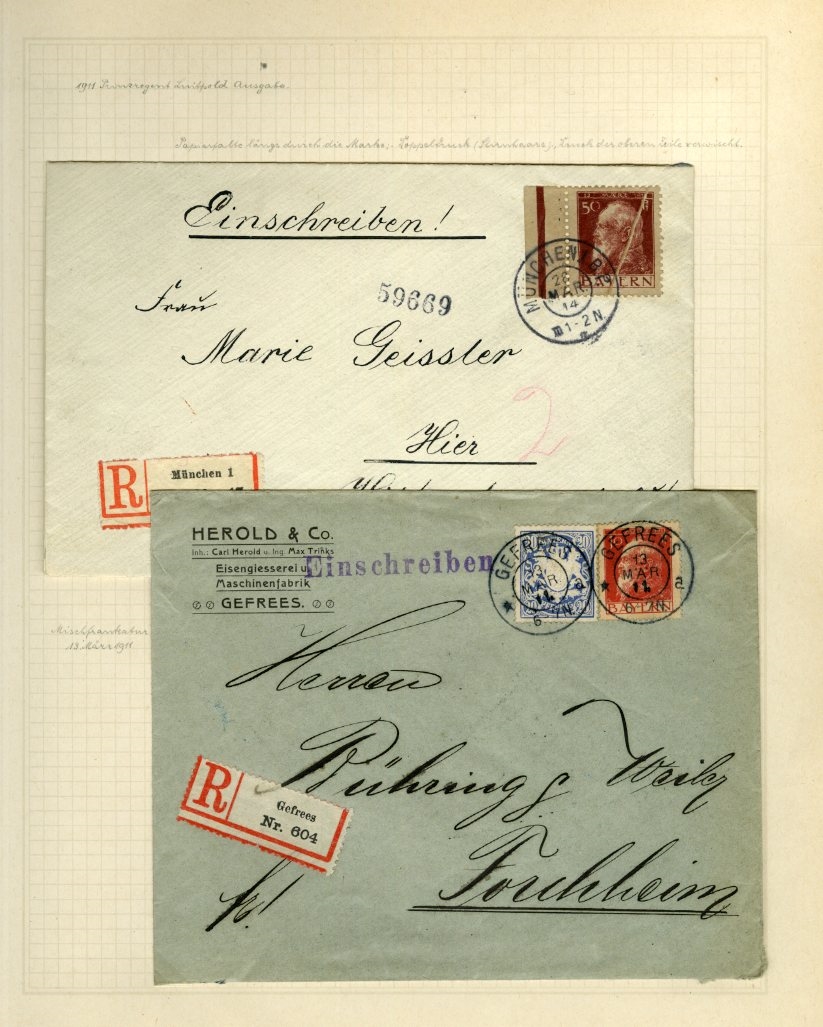 1911 Prinzregent Luitpold Ausgabe.
Papierfalte längs durch die Marke; Doppeldruck (Stirnhaare), Druck der oberen Zeile verwischt.
Einschreiben!
50
BAYERN
MÜNCHEN 1 B.P.
26
MAR
14
1-2N
Frau
59669
Marie Geissler
2
Hier
R
München 1
HEROLD & Co.
Inh.: Carl Herold u. Ing. Max Trinks
Eisengiesserei u.
Maschinenfabrik
GEFREES.
Einschreiben
GEFREES
13
MAR
11
6-7N
a
GEFREES
13
MAR
11
6-7N
a
BAYERN
Mischfrankatur
13. März 1911
Herren
Bühring &
Forchheim
R
Gefrees
Nr. 604